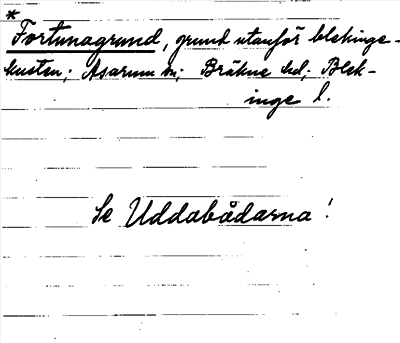 *
Fortunagrund, grund utanför blekinge-
kusten; Asarum sn; Bräkne hd; Blek-
inge l.
Se Uddabådarna!